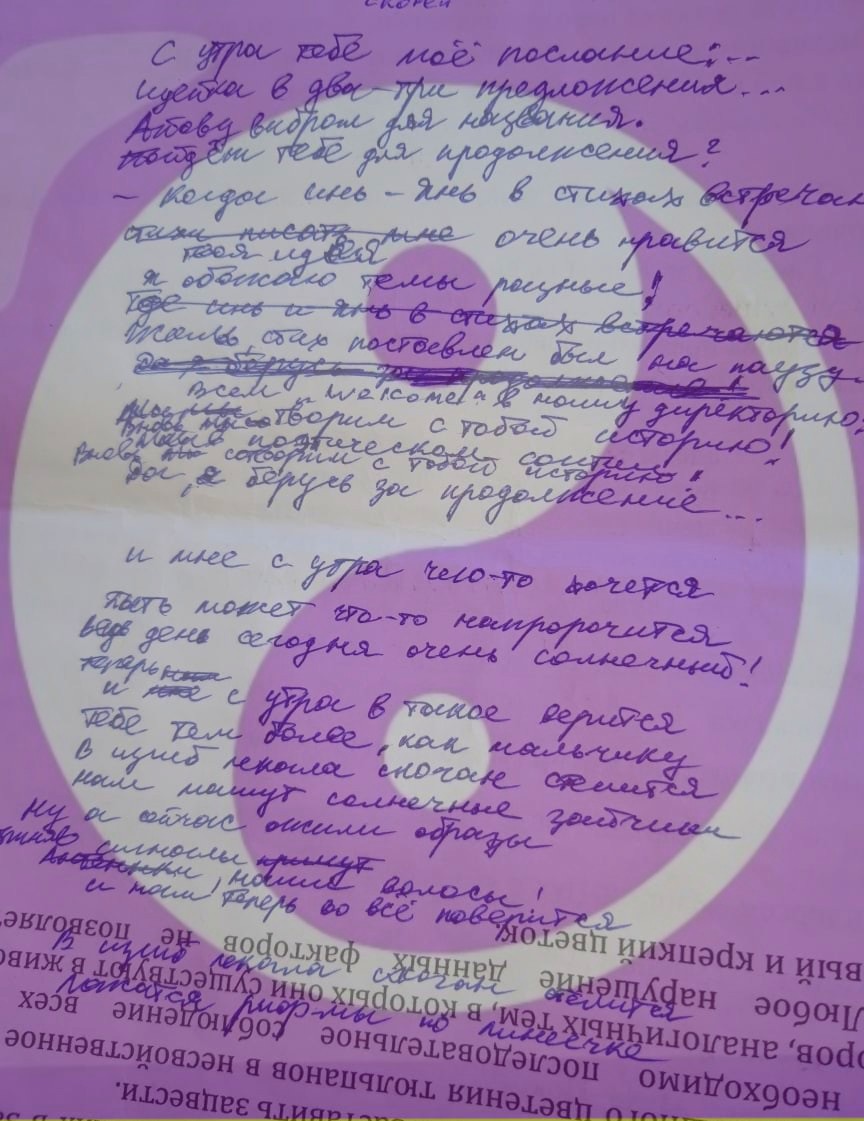 С утра тебе моё послание:...
идейка в два-три предложения...
выбрал для названия.
Пойдёт тебе для продолжения?
- Когда инь-янь в стихах встречаю
стихи писать мне очень нравится
твоя идея
я обожаю темы разные!
Где инь и янь в стихах встречаются
Жаль, стих поставлен был на паузу
Да я берусь за продолжение!
Всем "welcome" в нашу директорию:
творим с тобой историю!
в поэтическом
Вновь сотворим с тобой историю!
Да, я берусь за продолжение...
и мне с утра чего-то хочется
быть может что-то напророчится
ведь день сегодня очень солнечный!
теперь
и с утра в такое верится
тебе тем более, как мальчику
В изгиб лекала скочан стелится
нам машут солнечные зайчики
ну а сейчас ожили образы
сигналы примут
Антенки наши волосы!
и нам теперь во всё поверится
В изгиб лекала скочан стелится
Ложатся рифмы по линеечке
вый и крепкий цветок.
Любое нарушение данных факторов не позволяе
оров, аналогичных тем, в которых они существуют в жив
необходимо последовательное соблюдение всех
ного цветения тюльпанов в несвойственное
аставить зацвести.